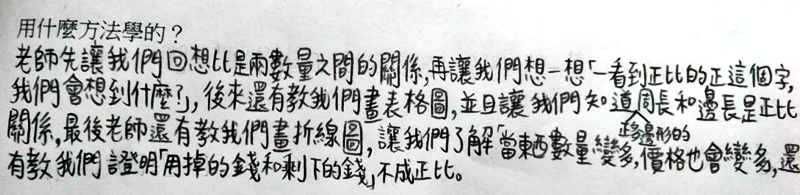 用什麼方法學的？
老師先讓我們回想比是兩數量之間的關係,再讓我們想一想「一看到正比的正這個字,
我們會想到什麼」,後來還有教我們畫表格圖,並且讓我們知道周長和邊長是正比
正多邊形的
關係,最後老師還有教我們畫折線圖,讓我們了解「當東西數量變多,價格也會變多,還
有教我們證明「用掉的錢和剩下的錢」不成正比。